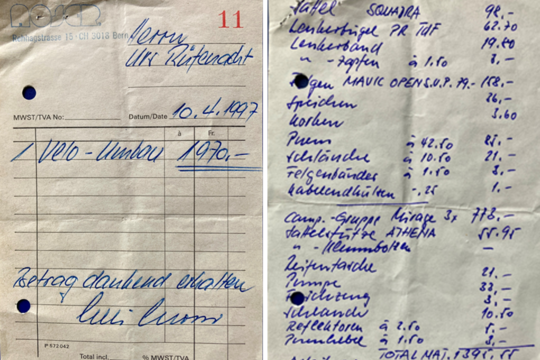 11
CH 3018 Bern
Herrn
MWST/TVA No:
Datum/Date 10.4.1997
à Fr.
1 Velo-Umbau 1970.-
Betrag dankend erhalten
P 573 042
Total incl. % MWST/TVA
Sattel SQUADRA 98.-
Lenkerbügel PR TTF 62.70
Lenkerband 19.80
" -Zapfen à 1.50 3.-
Felgen MAVIC OPEN S.U.P. 79.- 158.-
Speichen
3.60
Pneus à 42.50
Schläuche à 10.50 21.-
Felgenbänder à 1.50 3.-
Kabelendhülsen -.25 1.-
Camp.-Gruppe Mirage 3x 778.-
Sattelstütze ATHENA 55.95
" -Klemmbolzen —
Seitentasche 21.-
Pumpe 32.-
3.-
Schlauch 10.50
Reflektoren à 2.50 5.-
Pneuheber à 1.50 3.-
TOTAL MAT.